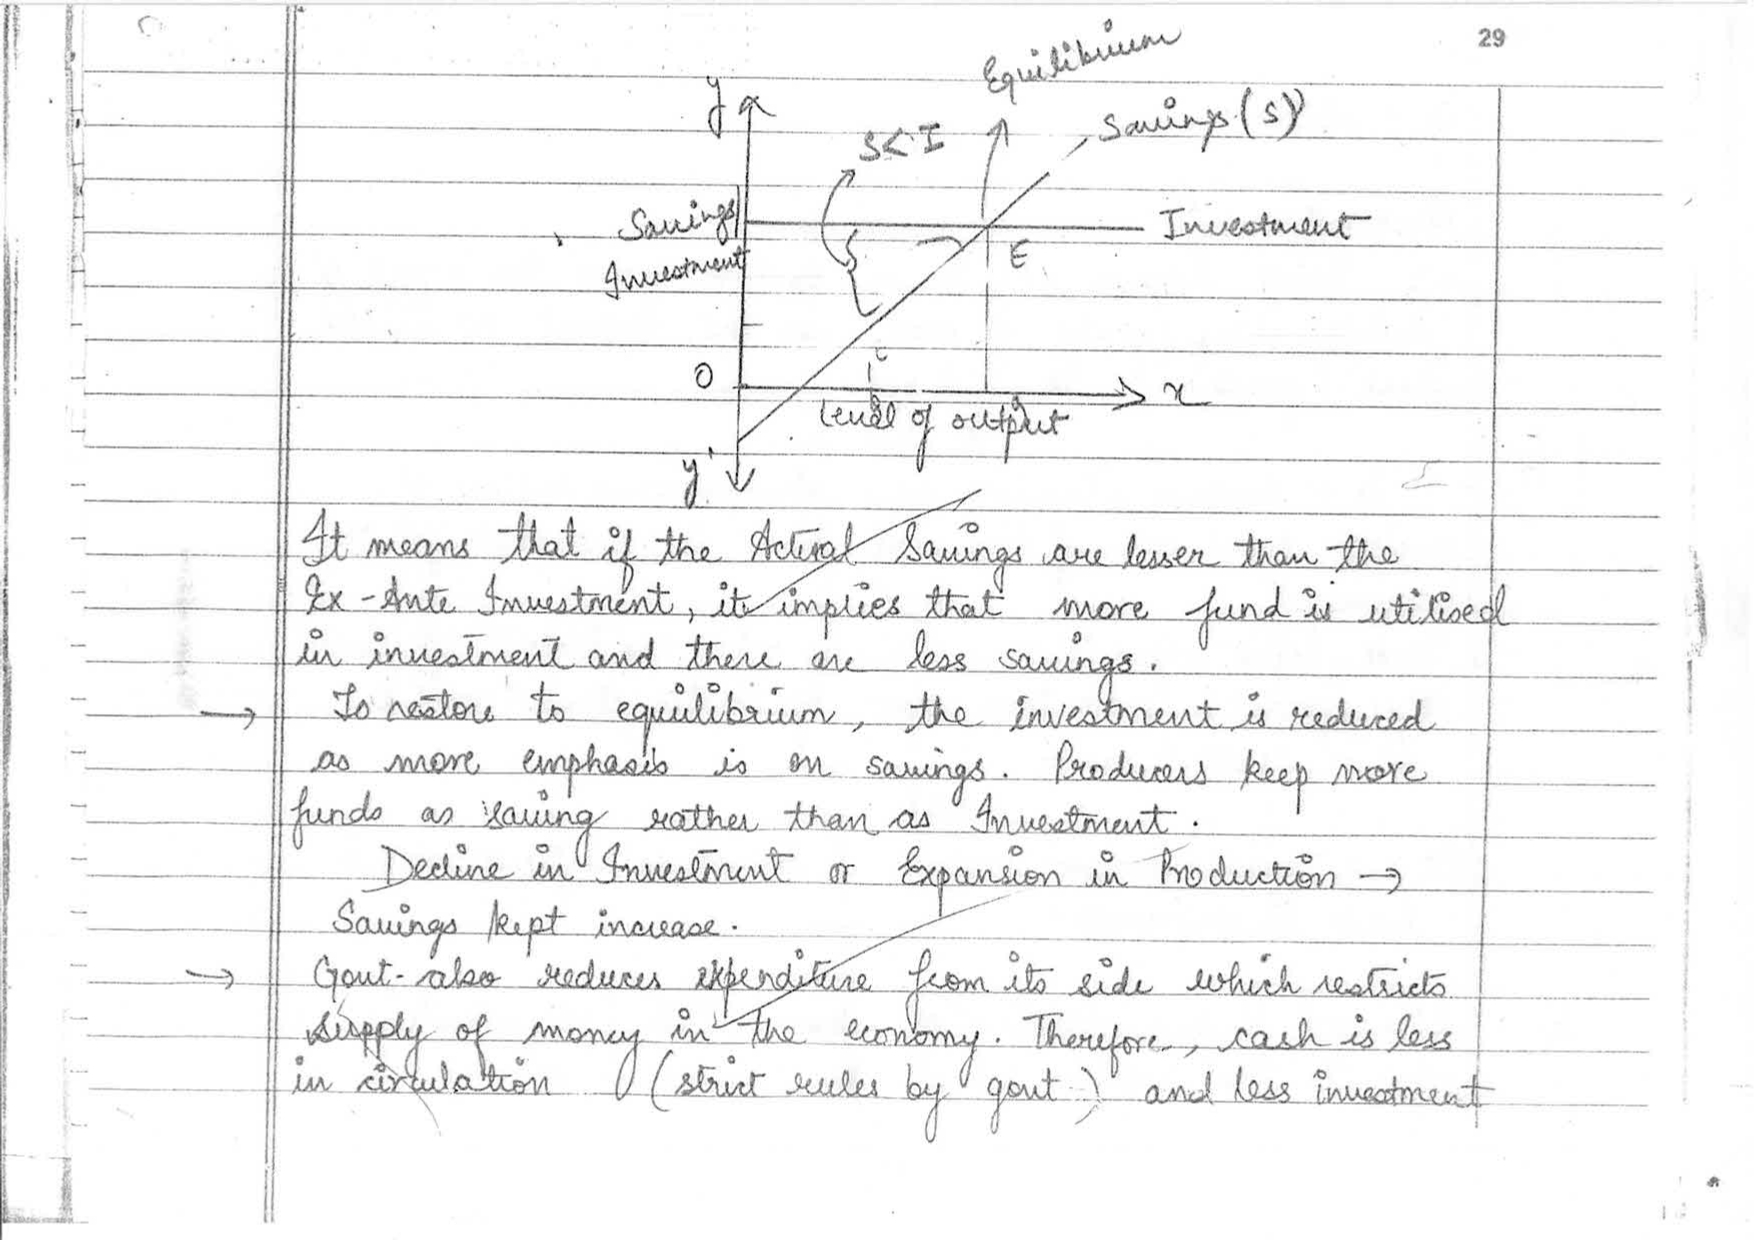 29
Equilibrium
y
S < I
Savings (S)
Savings/
Investment
Investment
E
O
x
level of output
y'
It means that if the Actual Savings are lesser than the
Ex-Ante Investment, it implies that more fund is utilised
in investment and there are less savings.
→ To restore to equilibrium, the investment is reduced
as more emphasis is on savings. Producers keep more
funds as saving rather than as Investment.
Decline in Investment or Expansion in Production →
Savings kept increase.
→ Govt. also reduces expenditure from its side which restricts
supply of money in the economy. Therefore, cash is less
in circulation (strict rules by govt.) and less investment